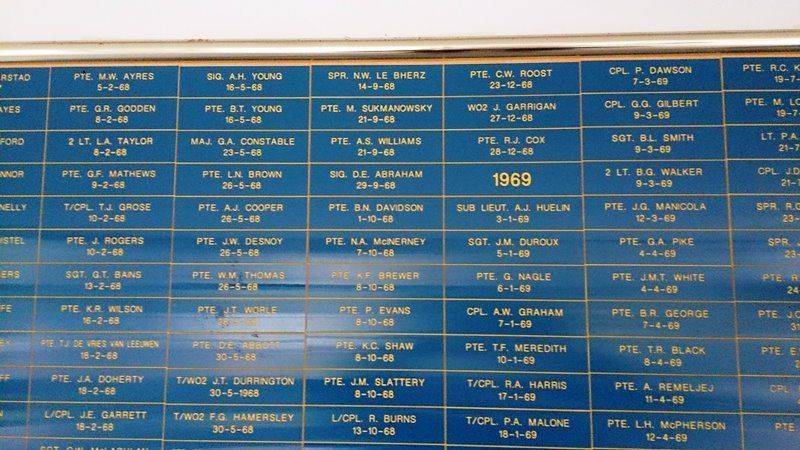 RSTAD
AYES
FORD
NNOR
NELLY
ISTEL
ERS
FE
PTE. M.W. AYRES
5-2-68
PTE. G.R. GODDEN
8-2-68
2 LT. L.A. TAYLOR
8-2-68
PTE. G.F. MATHEWS
9-2-68
T/CPL. T.J. GROSE
10-2-68
PTE. J. ROGERS
10-2-68
SGT. G.T. BAINS
13-2-68
PTE. K.R. WILSON
16-2-68
PTE. T.J. DE VRIES VAN LEEUWEN
18-2-68
PTE. J.A. DOHERTY
18-2-68
L/CPL. J.E. GARRETT
18-2-68
SIG. A.H. YOUNG
16-5-68
PTE. B.T. YOUNG
16-5-68
MAJ. G.A. CONSTABLE
23-5-68
PTE. L.N. BROWN
26-5-68
PTE. A.J. COOPER
26-5-68
PTE. J.W. DESNOY
26-5-68
PTE. W.M. THOMAS
26-5-68
PTE. J.T. WORLE
PTE. D.E. ABBOTT
30-5-68
T/WO2 J.T. DURRINGTON
30-5-1968
T/WO2 F.G. HAMERSLEY
30-5-68
SPR. N.W. LE BHERZ
14-9-68
PTE. M. SUKMANOWSKY
21-9-68
PTE. A.S. WILLIAMS
21-9-68
SIG. D.E. ABRAHAM
29-9-68
PTE. B.N. DAVIDSON
1-10-68
PTE. N.A. McINERNEY
7-10-68
PTE. K.F. BREWER
8-10-68
PTE. P. EVANS
8-10-68
PTE. K.C. SHAW
8-10-68
PTE. J.M. SLATTERY
8-10-68
L/CPL. R. BURNS
13-10-68
PTE. C.W. ROOST
23-12-68
WO2 J. GARRIGAN
27-12-68
PTE. R.J. COX
28-12-68
1969
SUB LIEUT. A.J. HUELIN
3-1-69
SGT. J.M. DUROUX
5-1-69
PTE. G. NAGLE
6-1-69
CPL. A.W. GRAHAM
7-1-69
PTE. T.F. MEREDITH
10-1-69
T/CPL. R.A. HARRIS
17-1-69
T/CPL. P.A. MALONE
18-1-69
CPL. P. DAWSON
7-3-69
CPL. G.G. GILBERT
9-3-69
SGT. B.L. SMITH
9-3-69
2 LT. B.G. WALKER
9-3-69
PTE. J.G. MANICOLA
12-3-69
PTE. G.A. PIKE
4-4-69
PTE. J.M.T. WHITE
4-4-69
PTE. B.R. GEORGE
7-4-69
PTE. T.R. BLACK
8-4-69
PTE. A. REMELJEJ
11-4-69
PTE. L.H. McPHERSON
12-4-69
PTE. R.C. K
19-7-
PTE. M. LO
19-7-
LT. P.A.
21-7
CPL. J.D.
21-
SPR. R.G
23-
SPR.
23-
PTE. R
24
PTE. J.C
PTE. E.
CPL.
PTE.